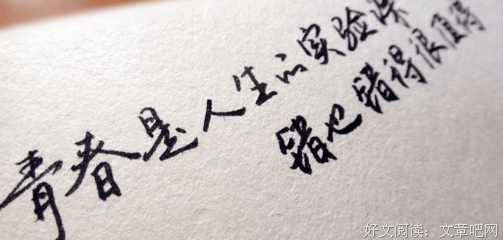 青春是人生的实验课
错也错得很值得
好文阅读：文章吧网